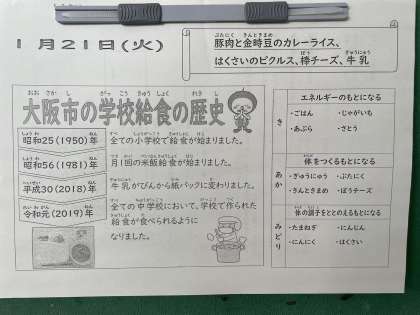 1月21日(火)
豚肉と金時豆のカレーライス、
はくさいのピクルス、棒チーズ、牛乳
大阪市の学校給食の歴史
昭和25(1950)年
全ての小学校で給食が始まりました。
昭和56(1981)年
月1回の米飯給食が始まりました。
平成30(2018)年
牛乳がびんから紙パックに変わりました。
令和元(2019)年
全ての中学校において、学校で作られた
給食が食べられるように
なりました。
き
エネルギーのもとになる
・ごはん ・じゃがいも
・あぶら ・さとう
あか
体をつくるもとになる
・ぎゅうにゅう ・ぶたにく
・きんときまめ ・ぼうチーズ
みどり
体の調子をととのえるもとになる
・たまねぎ ・にんじん
・にんにく ・はくさい